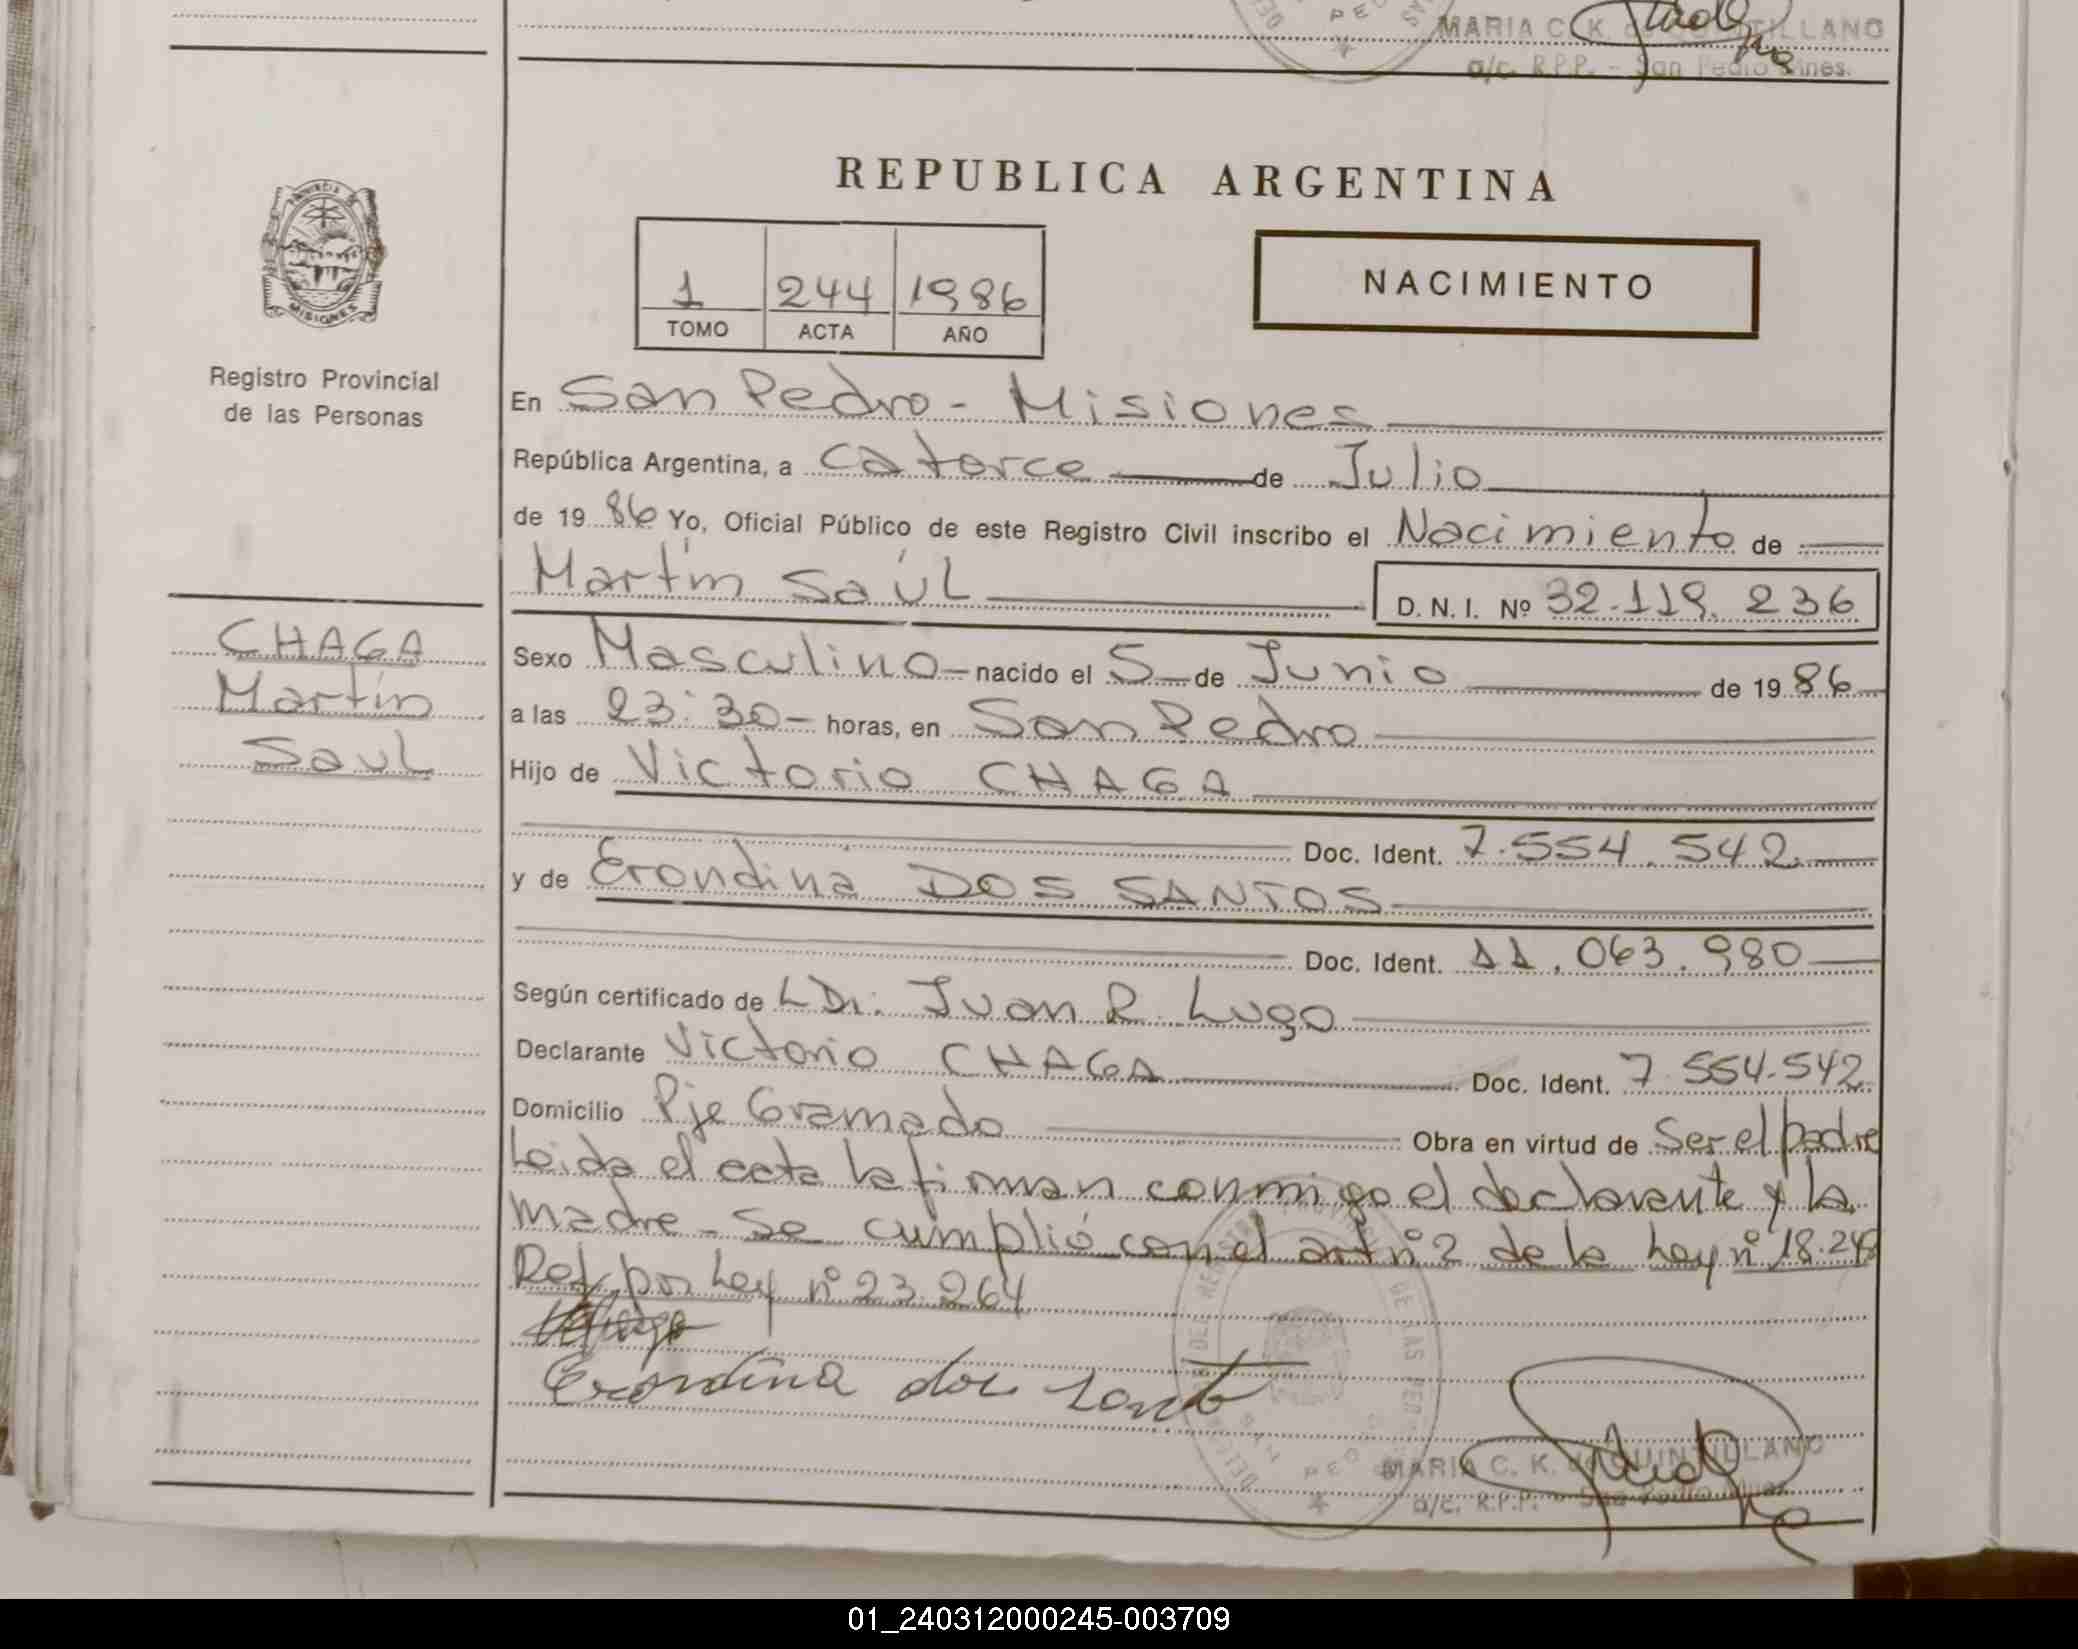 MARIA C. K. de QUINTILLANO
a/c. R.P.P. - San Pedro Mnes.
REPUBLICA ARGENTINA
PROVINCIA DE
MISIONES
1 244 1986
TOMO ACTA AÑO
NACIMIENTO
Registro Provincial
de las Personas
En San Pedro - Misiones
República Argentina, a Catorce de Julio
de 1986 Yo, Oficial Público de este Registro Civil inscribo el Nacimiento de
Martín Saúl D. N. I. Nº 32.119.236
CHAGA
Martín
Saul
Sexo Masculino - nacido el 5 de Junio de 1986
a las 23:30 - horas, en San Pedro
Hijo de Victorio CHAGA
Doc. Ident. 7.554.542
y de Erondina DOS SANTOS
Doc. Ident. 11.063.980
Según certificado de Juan R. Lugo
Declarante Victorio CHAGA Doc. Ident. 7.554.542
Domicilio Pje Gramado Obra en virtud de Ser el padre
Leida el acta la firman conmigo el declarante y la
madre - Se cumplió con el art nº 2 de la Ley nº 18.248
Ref. por Ley nº 23.264
Erondina dos
MARIA C. K. de QUINTILLANO
a/c. R.P.P. - San Pedro Mnes.
01_240312000245-003709